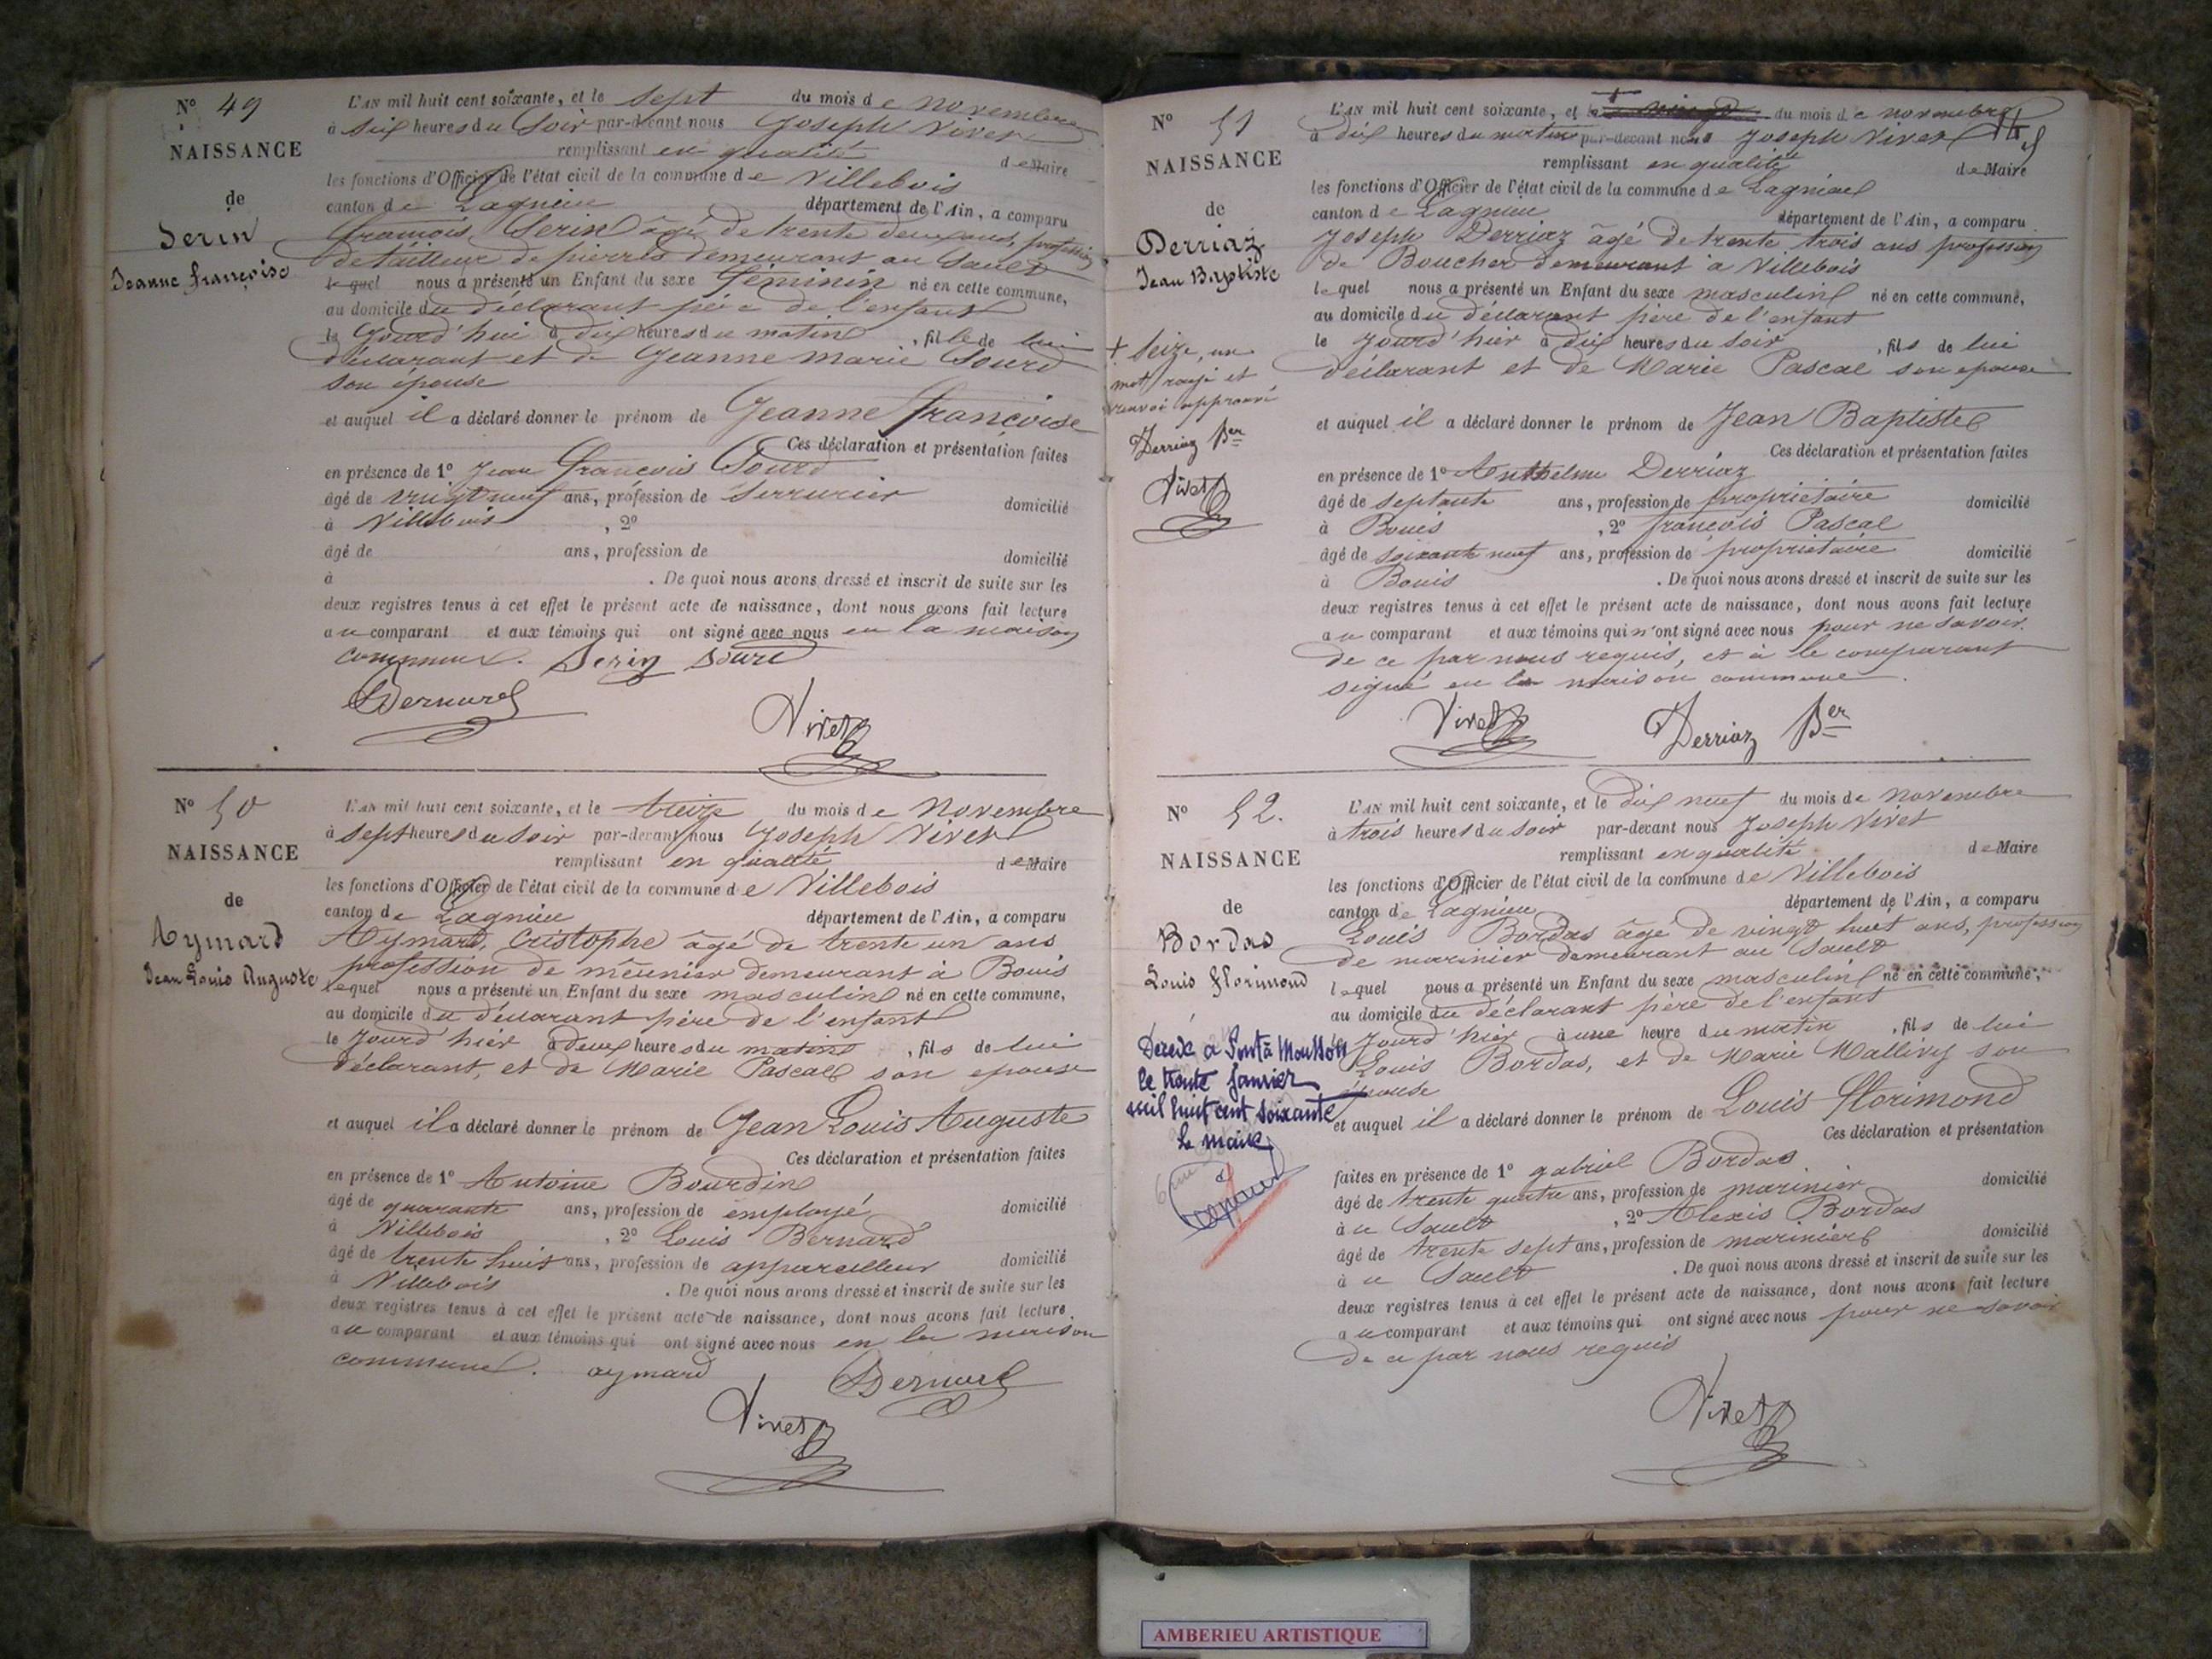 N° 49
NAISSANCE
de
Serin
Jeanne françoise
L'AN mil huit cent soixante, et le sept du mois de novembre
à six heures du Soir par-devant nous Joseph Vivet
remplissant en qualité de Maire
les fonctions d'Officier de l'état civil de la commune de Villebois
canton de Lagnieu département de l'Ain, a comparu
francois Serin âgé de trente deux ans, profession
de tailleur de pierres demeurant au Sault
lequel nous a présenté un Enfant du sexe féminin né en cette commune,
au domicile du déclarant père de l'enfant
le Jourd'hui à dix heures du matin, fille de lui
déclarant et de Jeanne Marie Sourd
son épouse
et auquel il a déclaré donner le prénom de Jeanne françoise
Ces déclaration et présentation faites
en présence de 1° Jean François Sourd
âgé de vingt neuf ans, profession de Serrurier domicilié
à Villebois, 2°
âgé de ans, profession de domicilié
à . De quoi nous avons dressé et inscrit de suite sur les
deux registres tenus à cet effet le présent acte de naissance, dont nous avons fait lecture
au comparant et aux témoins qui ont signé avec nous en la maison
commune. Serin Sourd
Bernard
Vivet
N° 50
NAISSANCE
de
Aymard
Jean Louis Auguste
L'AN mil huit cent soixante, et le treize du mois de Novembre
à sept heures du soir par-devant nous Joseph Vivet
remplissant en qualité de Maire
les fonctions d'Officier de l'état civil de la commune de Villebois
canton de Lagnieu département de l'Ain, a comparu
Aymard, Cristophe âgé de trente un ans
profession de meunier demeurant à Bouis
lequel nous a présenté un Enfant du sexe masculin né en cette commune,
au domicile du déclarant père de l'enfant
le Jourd'hier à deux heures du matin, fils de lui
déclarant, et de Marie Pascal son epouse
et auquel il a déclaré donner le prénom de Jean Louis Auguste
Ces déclaration et présentation faites
en présence de 1° Antoine Bourdin
âgé de quarante ans, profession de employé domicilié
à Villebois, 2° Louis Bernard
âgé de trente huit ans, profession de appareilleur domicilié
à Villebois. De quoi nous avons dressé et inscrit de suite sur les
deux registres tenus à cet effet le présent acte de naissance, dont nous avons fait lecture
au comparant et aux témoins qui ont signé avec nous en la maison
commune. aymard Bernard
Vivet
N° 51
NAISSANCE
de
Derriaz
Jean Baptiste
+ seize, un
mot rayé et
renvoi approuvé
Derriaz Ber
Vivet
L'AN mil huit cent soixante, et le + du mois de novembre
à dix heures du matin par-devant nous Joseph Vivet
remplissant en qualité de Maire
les fonctions d'Officier de l'état civil de la commune de Lagnieu
canton de Lagnieu département de l'Ain, a comparu
Joseph Derriaz âgé de trente trois ans profession
de Boucher demeurant à Villebois
lequel nous a présenté un Enfant du sexe masculin né en cette commune,
au domicile du déclarant père de l'enfant
le Jourd'hier à dix heures du soir, fils de lui
déclarant et de Marie Pascal son epouse
et auquel il a déclaré donner le prénom de Jean Baptiste
Ces déclaration et présentation faites
en présence de 1° Anthelme Derriaz
âgé de septante ans, profession de propriétaire domicilié
à Bouis, 2° françois Pascal
âgé de soixante neuf ans, profession de propriétaire domicilié
à Bouis. De quoi nous avons dressé et inscrit de suite sur les
deux registres tenus à cet effet le présent acte de naissance, dont nous avons fait lecture
au comparant et aux témoins qui n'ont signé avec nous pour ne savoir.
de ce par nous requis, et à le comparant
signé en la maison commune.
Vivet Derriaz Ber
N° 52.
NAISSANCE
de
Bordas
Louis florimond
Décédé à Pont à Mousson
le trente Janvier
mil huit cent soixante
le maire
L'AN mil huit cent soixante, et le dix neuf du mois de novembre
à trois heures du soir par-devant nous Joseph Vivet
remplissant en qualité de Maire
les fonctions d'Officier de l'état civil de la commune de Villebois
canton de Lagnieu département de l'Ain, a comparu
Louis Bordas âgé de vingt huit ans, profession
de marinier demeurant au Sault
lequel nous a présenté un Enfant du sexe masculin né en cette commune,
au domicile du déclarant père de l'enfant
le Jourd'hier à une heure du matin, fils de lui
Louis Bordas, et de Marie son
épouse
et auquel il a déclaré donner le prénom de Louis florimond
Ces déclaration et présentation
faites en présence de 1° gabriel Bordas
âgé de trente quatre ans, profession de marinier domicilié
à u Sault, 2° Alexis Bordas
âgé de trente sept ans, profession de marinier domicilié
à u Sault. De quoi nous avons dressé et inscrit de suite sur les
deux registres tenus à cet effet le présent acte de naissance, dont nous avons fait lecture
au comparant et aux témoins qui ont signé avec nous pour ne savoir
de ce par nous requis
Vivet
AMBERIEU ARTISTIQUE